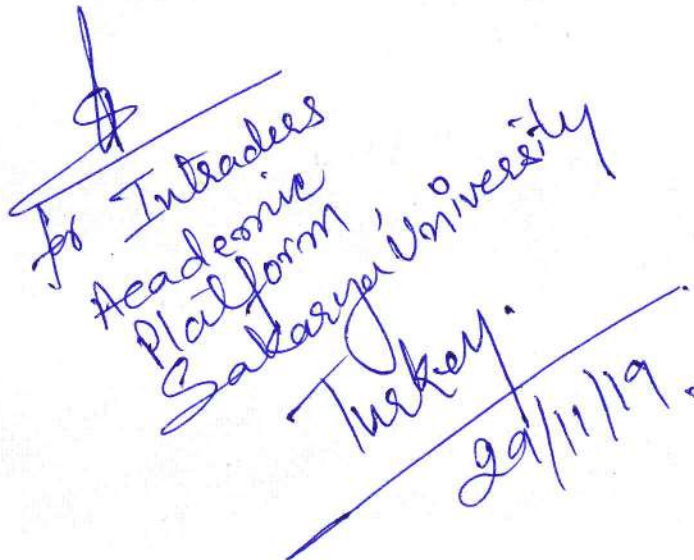 for Intraders
Academic
Platform,
Sakarya University
Turkey.
29/11/19.